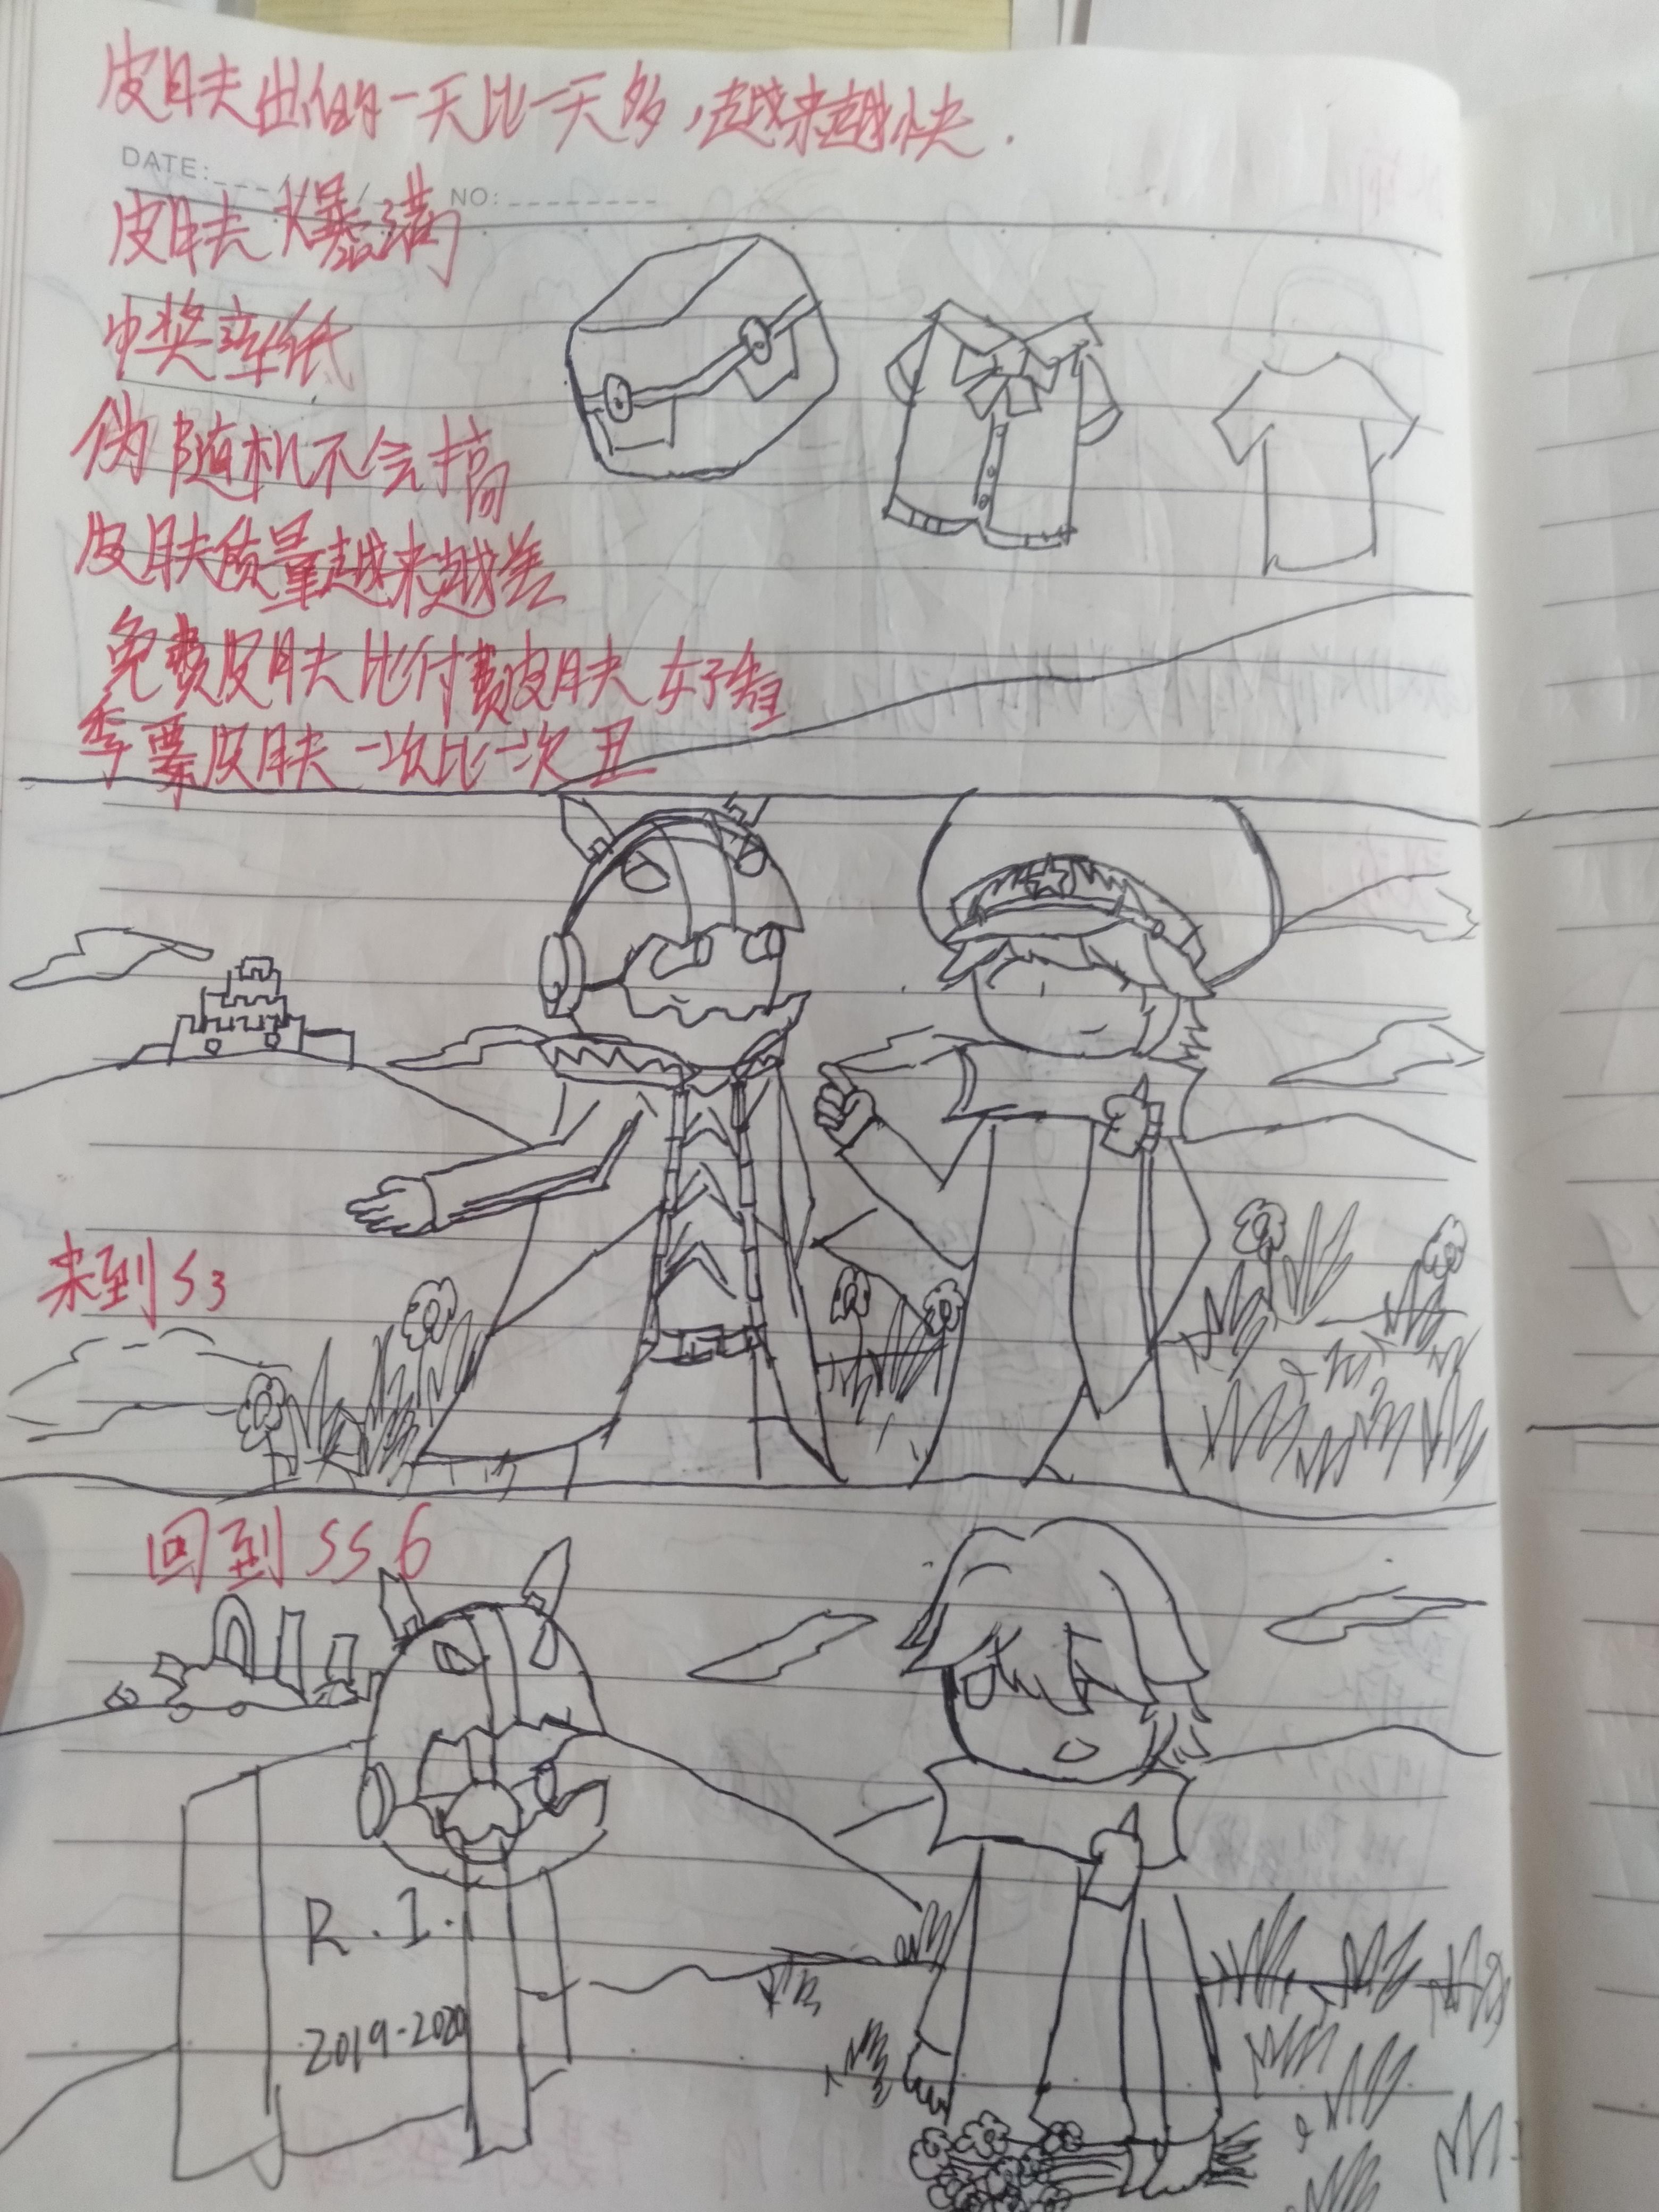 皮肤出的一天比一天多，越来越快.
DATE: / /
NO:
皮肤爆满
中奖率低
伪随机不会搞
皮肤质量越来越差
免费皮肤比付费皮肤好看
季票皮肤一次比一次丑
来到S3
回到SS6
R.I.
2019-2020